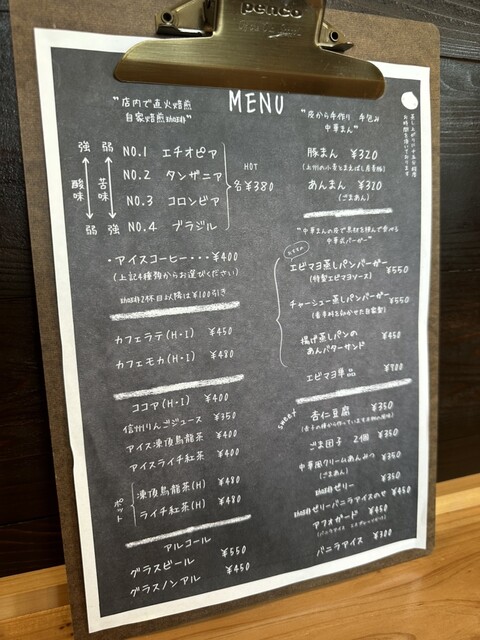 penco
MENU
"店内で直火焙煎
自家焙煎珈琲"
強 弱
酸味 苦味
弱 強
NO.1 エチオピア
NO.2 タンザニア
NO.3 コロンビア
NO.4 ブラジル
HOT
各¥380
・アイスコーヒー・・・¥400
(上記4種類からお選びください)
珈琲2杯目以降は¥100引き
カフェラテ(H・I) ¥450
カフェモカ(H・I) ¥480
ココア(H・I) ¥400
信州りんごジュース ¥350
アイス凍頂烏龍茶 ¥400
アイスライチ紅茶 ¥400
ポット
凍頂烏龍茶(H) ¥480
ライチ紅茶(H) ¥480
アルコール
グラスビール ¥550
グラスノンアル ¥450
"皮から手作り 手包み
中華まん"
豚まん ¥320
あんまん ¥320
(ごまあん)
"中華まんの皮で具材を挟んで食べる
中華式バーガー"
おすすめ
エビマヨ蒸しパンバーガー ¥550
(特製エビマヨソース)
チャーシュー蒸しパンバーガー ¥550
(香辛料をきかせた自家製)
揚げ蒸しパンの
あんバターサンド ¥450
エビマヨ単品 ¥700
SWEET
杏仁豆腐 ¥350
ごま団子 2個 ¥350
中華風クリームあんみつ ¥350
(ごまあん)
珈琲ゼリー ¥350
珈琲ゼリーバニラアイスのせ ¥450
アフォガード ¥450
バニラアイス ¥300